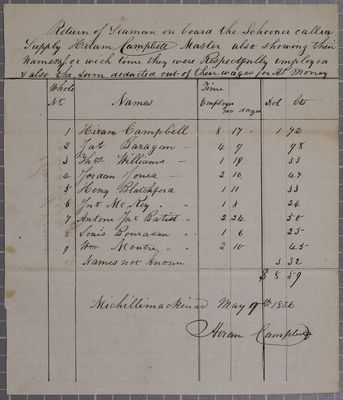 Return of Seaman on board the Schooner called
Supply Hiram Campbell Master also showing their
Names for wich time they were Respectfully employed
& also the Sum deducted out of their wages for Hl Money
Whole
No.
Names
Time
Employed
Mo days
Dol Cts
1 Hiram Campbell 8 17 1 72
2 Jas Baragan 4 9 98
3 Thos Williams 1 19 33
4 Jordan Jones 2 10 47
5 Heny Blatchford 1 11 33
6 Jno McKey 1 3 24
7 Antoni Jno Batist 2 24 50
8 Louis Bourasau 1 6 25
9 Wm Montre 2 10 45
Names not known 3 32
$ 8 59
Michillimackinac May 9th 1836
Hiram Campbell